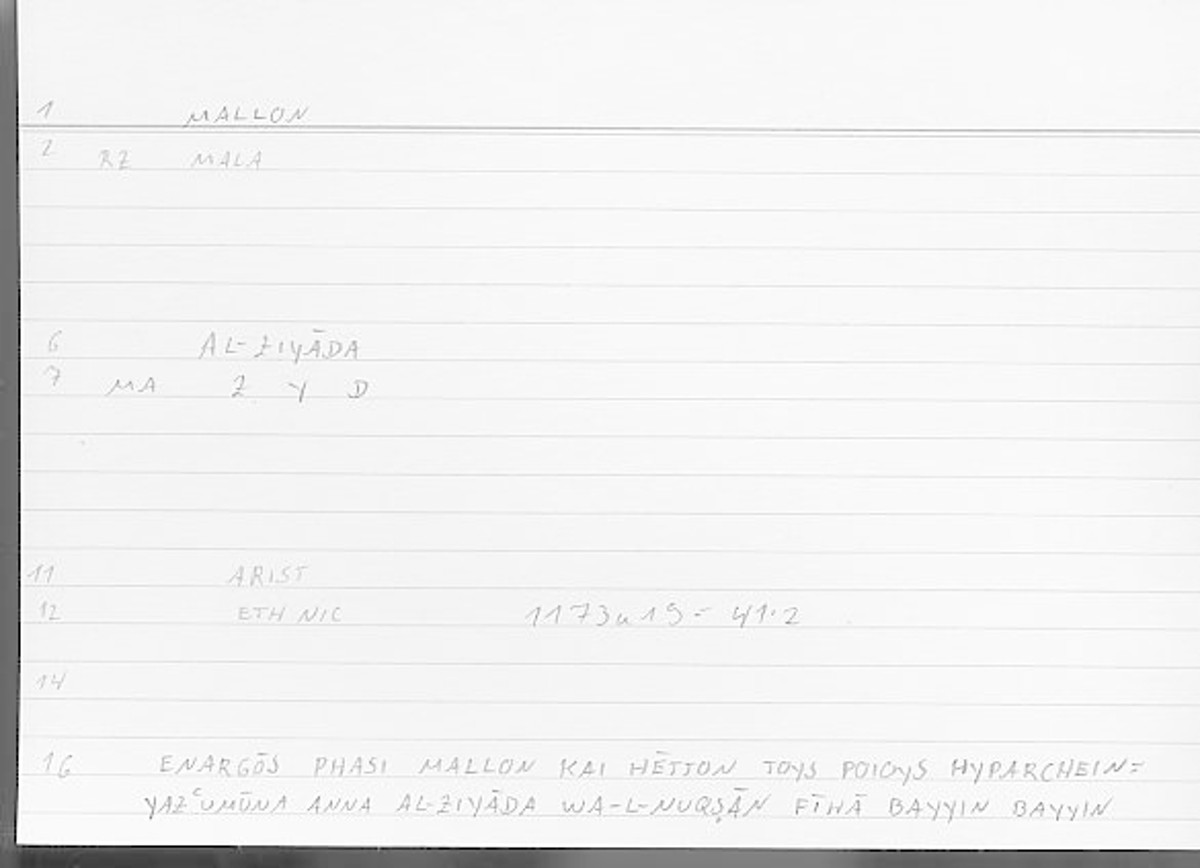 1 MALLON
2 RZ MALA
6 AL-ZIYĀDA
7 MA Z Y D
11 ARIST
12 ETH NIC 1173a19 = 41.2
14
16 ENARGŌS PHASI MALLON KAI HĒTTON TOYS POIOYS HYPARCHEIN =
YAZʿUMŪNA ANNA AL-ZIYĀDA WA-L-NUQṢĀN FĪHĀ BAYYIN BAYYIN